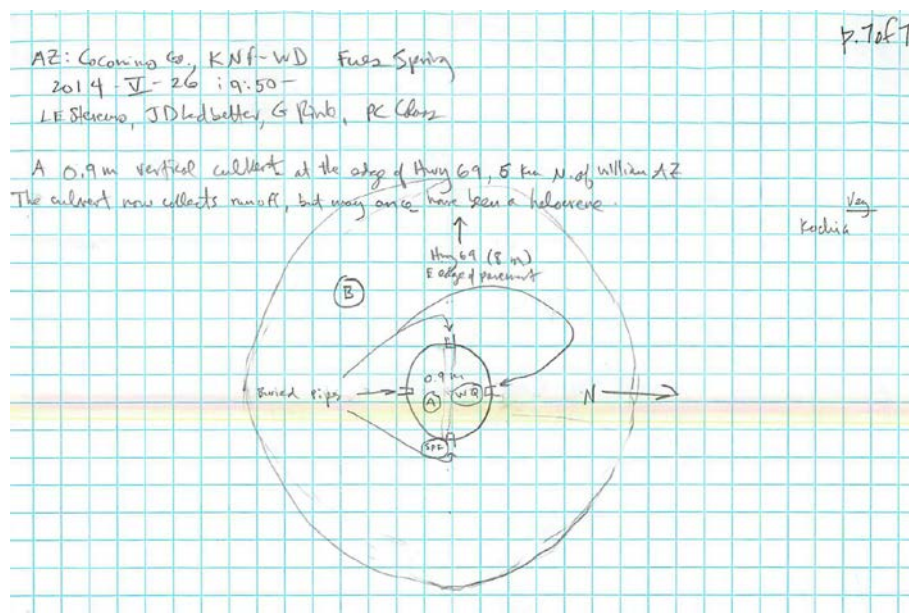 p. 7 of 7
AZ: Coconino Co., KNF-WD Spring
2014-V-26 19:50-
LE Stevens, JD Ledbetter, G
A 0.9 m vertical culvert at the edge of Hwy 69, 5 km N. of William AZ
The culvert now collects runoff, but may once have been a helocrene.
Veg
Kochia
Hwy 69 (8 m)
E edge of pavement
B
0.9 m
Buried pips
A
WQ
N
SPF